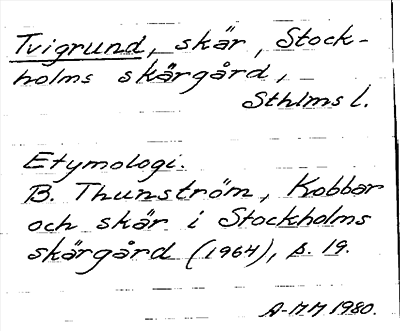 Tvigrund, skär, Stock-
holms skärgård,
Sthlms l.
Etymologi.
B. Thunström, Kobbar
och skär i Stockholms
skärgård (1964), s. 19.
A-MM 1980.